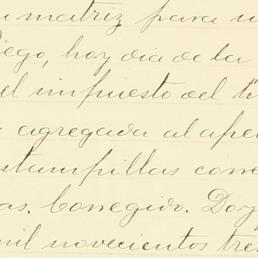 matriz para u
iego, hoy dia de la
el impuesto del ti
agregada al ape
stampillas corre
as. Corregido. Doy
mil novecientos tres